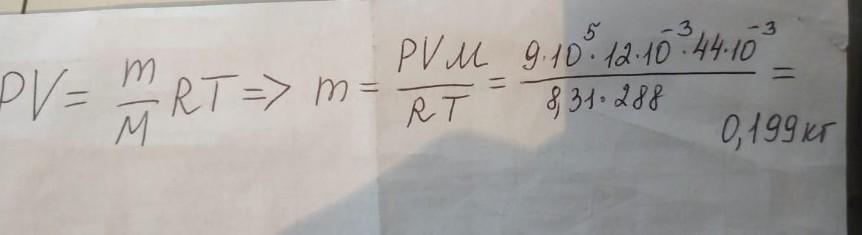 PV = m/M RT => m = PVM/RT = 9·10⁵·12·10⁻³·44·10⁻³/8,31·288 =
0,199кг